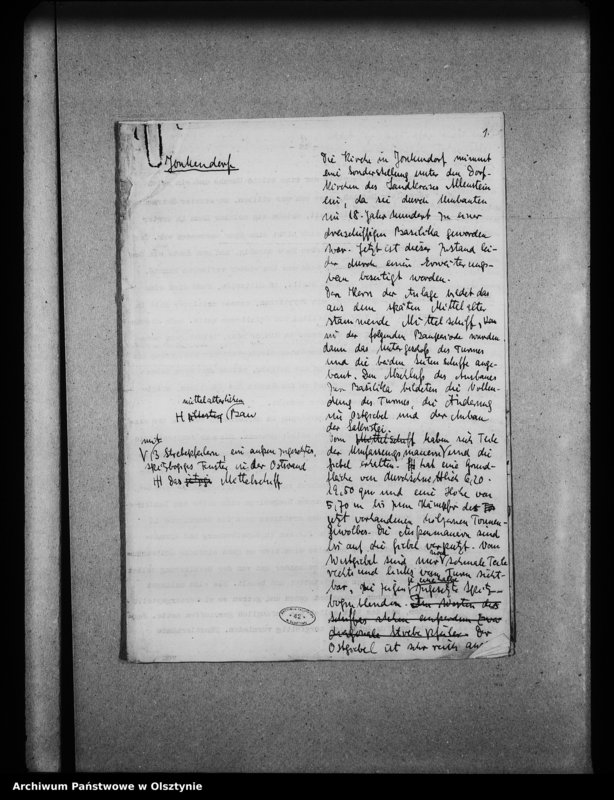 1.
Jonkendorf
Die Kirche in Jonkendorf nimmt
eine Sonderstellung unter den Dorf-
kirchen des Landkreises Allenstein
ein, da sie durch Umbauten
im 18. Jahrhundert zu einer
dreischiffigen Basilika geworden
war. Jetzt ist dieser Zustand lei-
der durch einen Erweiterungs-
bau beseitigt worden.
Den Kern der Anlage bildet das
aus dem späten Mittelalter
stammende Mittelschiff,
in der folgenden Bauperiode wurden
dann das Untergeschoß des Turmes
und die beiden Seitenschiffe ange-
baut. Den Abschluß des Ausbaues
zur Basilika bildeten die Vollen-
dung des Turmes, die Änderung
im Ostgiebel und der Anbau
der Sakristei.
mittelalterlichen
H Bau
Vom Mittelschiff haben sich Teile
der Umfassungsmauern und die
Giebel erhalten. H hat eine Grund-
fläche von durchschnittlich 6,20 ·
19,50 qm und eine Höhe von
5,70 m bis zum Kämpfer des
jetzt vorhandenen hölzernen Tonnen-
gewölbes. Die Außenmauern sind
bis auf die Giebel verputzt. Vom
Westgiebel sind nur noch schmale Teile
rechts und links vom Turm sicht-
bar, sie zeigen
bogenblenden. Im Westen des
Schiffes stehen außerdem zwei
diagonale Strebepfeiler. Der
Ostgiebel ist sehr reich
mit
V 3 Strebepfeilern, ein außen zugesetztes,
spitzbogiges Fenster in der Ostwand
H Das Mittelschiff
62
Archiwum Państwowe w Olsztynie